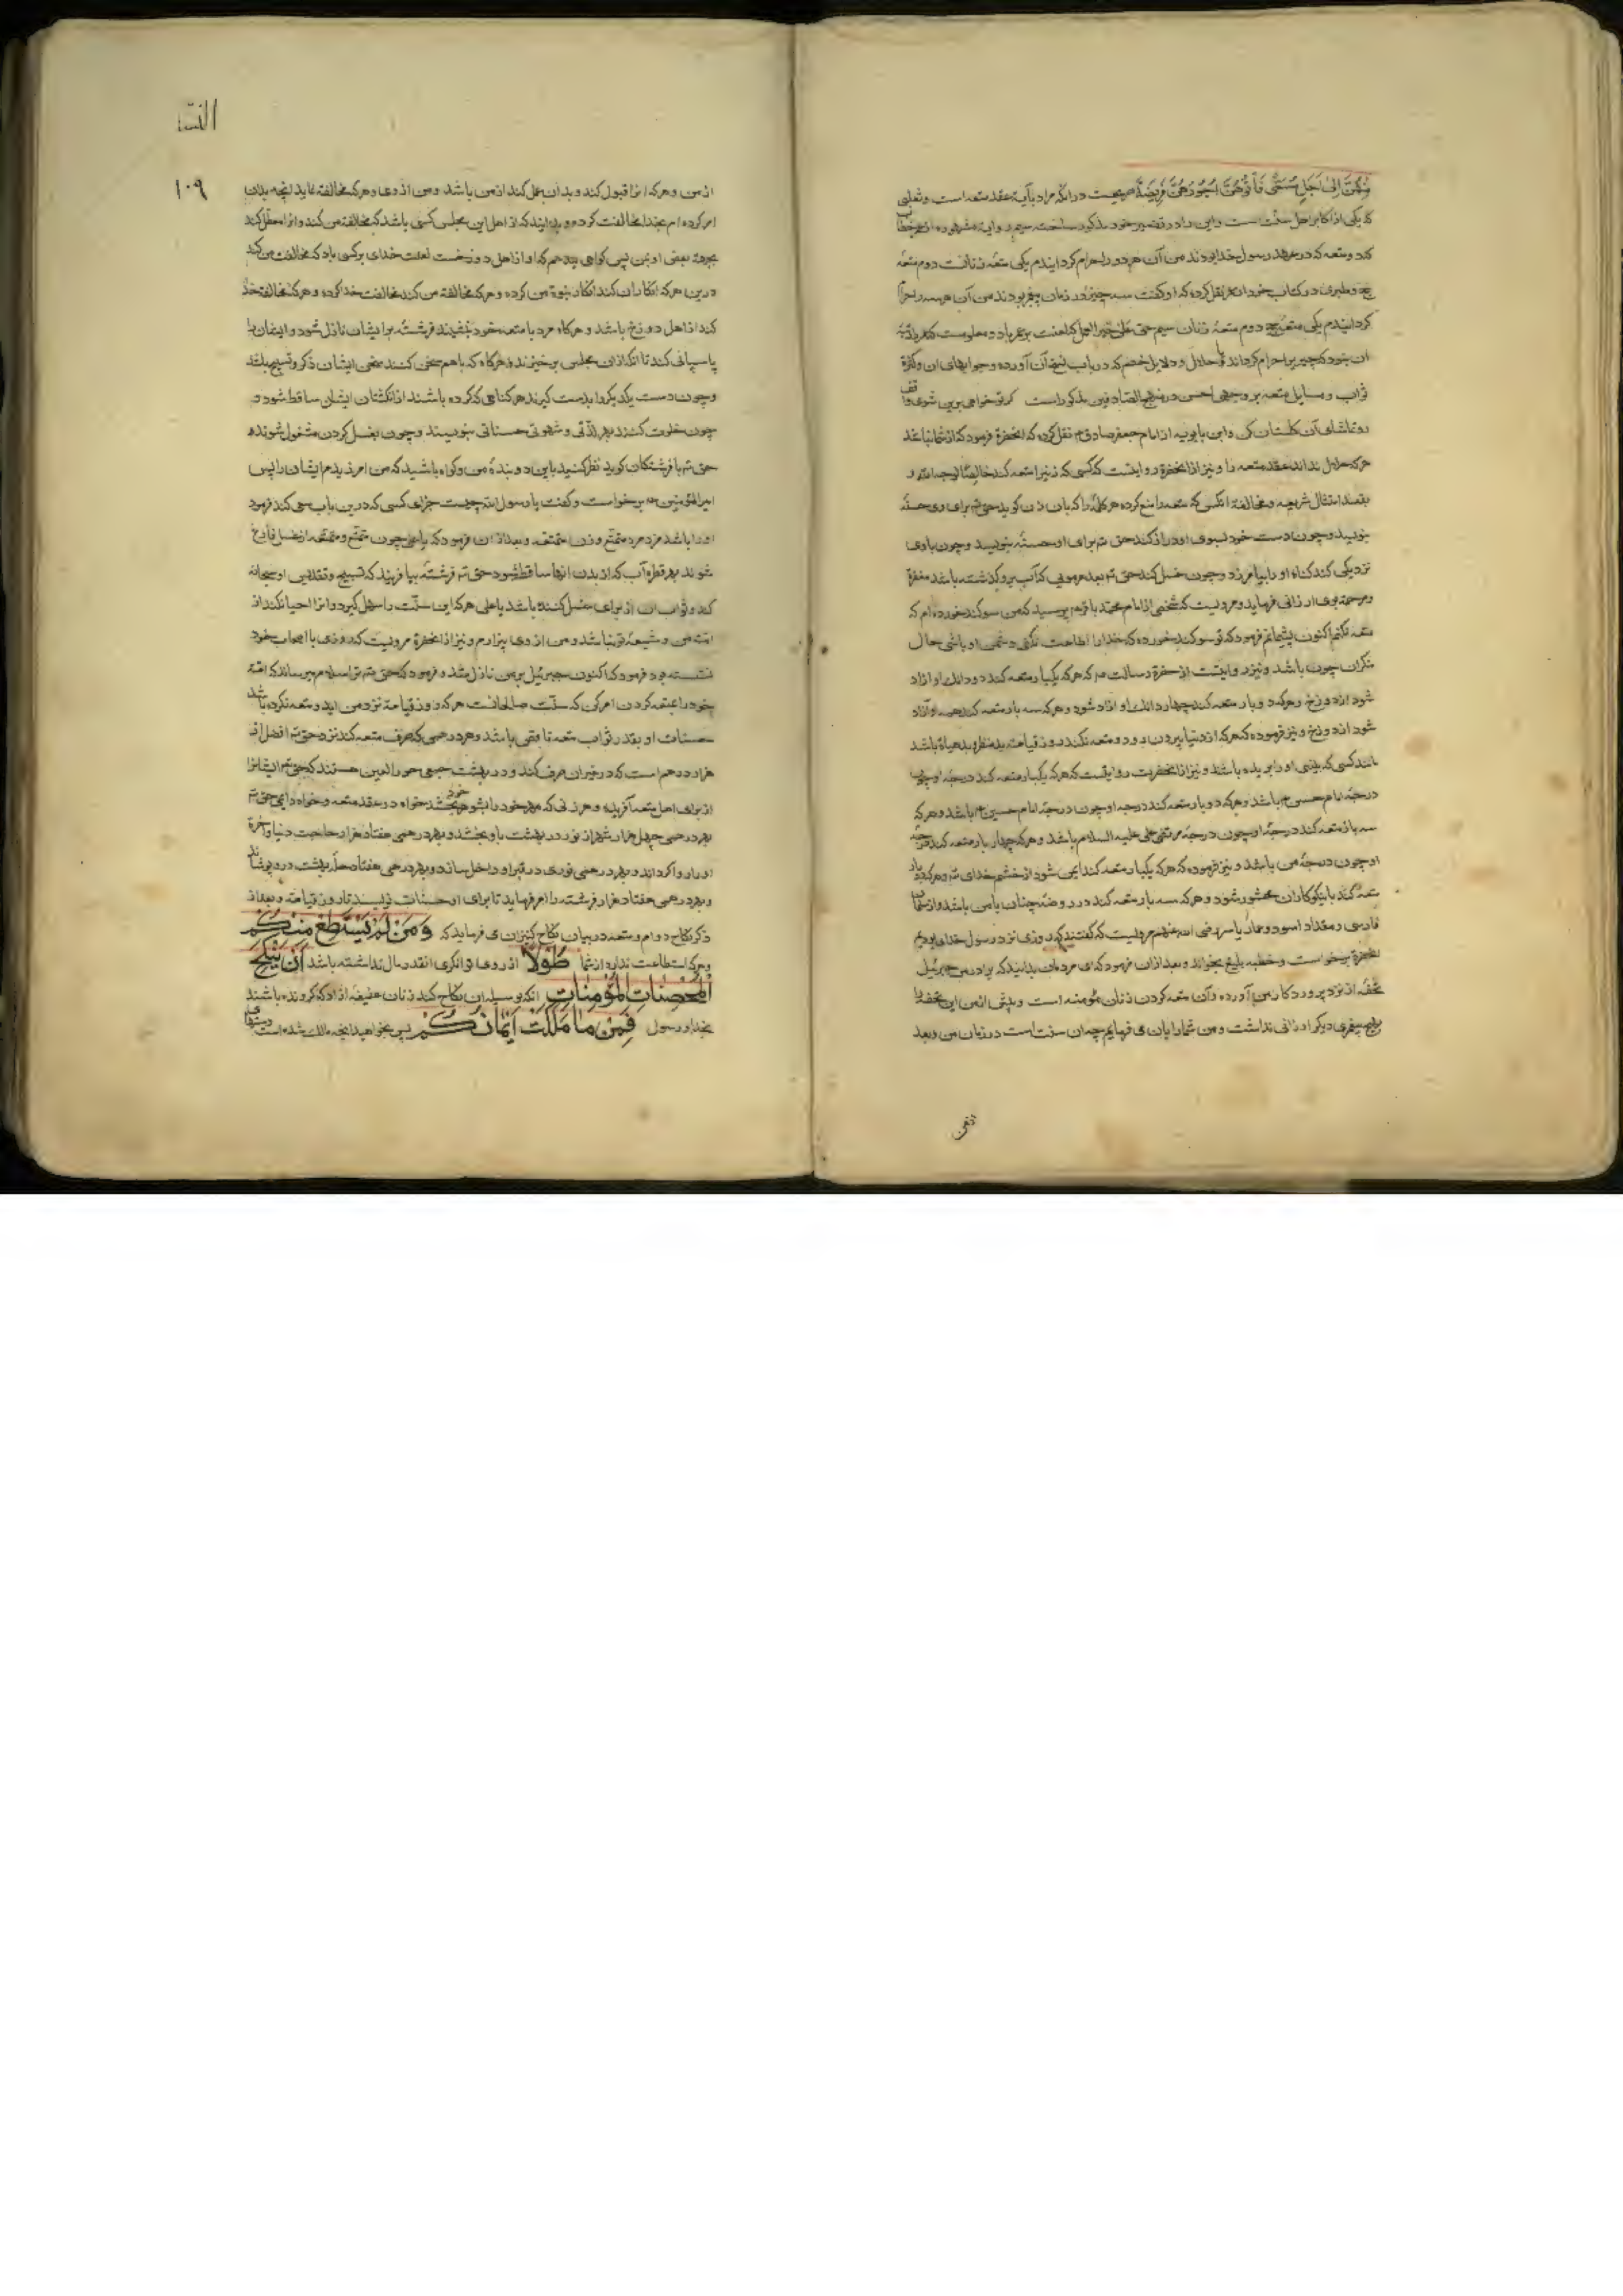 مِنْهُنَّ اِلىٰ اَجَلٍ مُسَمًّى فَآتُوهُنَّ اُجُورَهُنَّ فَرِيضَةً صریحست در انکه مراد بآیه عقد متعه است و ثعلبی
که یکی از اکابر اهل سنت است این را در تفسیر خود مذکور ساخته سیم روایة مشهوره از عمر خطاب
که دو متعه که در عهد رسول خدا بودند من آن هر دو را حرام کردانیدم یکی متعه زنانست دوم متعه
حج و طبری در کتاب خود از عمر نقل کرده که او کفت سه چیز در زمان پیغمبر بودند من آن هر سه را حرام
کردانیدم یکی متعه حج دوم متعه زنان سیم حی علی خیر العمل که لعنت بر عمر باد و معلومست که عمر را نه
ان بود که چیزیرا حرام کرداند یا حلال و دلایل خصم که در باب نسخ آن آورده و جوابهای ان و کثرة
ثواب و مسایل متعه بر وجهی احسن در منهج الصادقین مذکور است کر تو خواهی برین شوی واقف
رو تماشای آن کلستان کن و ابن بابویه از امام جعفر صادق ع نقل کرده که انحضرة فرمود که از شما نباشد
هر که حلال نداند عقد متعه را و نیز از انحضرة روایتست که کسی که زنیرا متعه کند خالصًا لوجه الله و
بقصد امتثال شریعه و مخالفة انکسی که متعه را منع کرده هر کلمه را که بان زن کوید حق تع برای وی حسنه
بنویسد و چون دست خود بسوی او دراز کند حق تع برای او حسنه بنویسد و چون با وی
نزدیکی کند کناه او را بیامرزد و چون غسل کند حق تع بعدد هر مویی که آب برو کذشته باشد مغفرة
و مرحمة بوی ارزانی فرماید و مرویست که شخصی از امام محمد باقر ع پرسید که من سوکند خورده ام که
متعه نکنم اکنون پشیمانم فرمود که تو سوکند خورده که خدا را اطاعت نکنی دشمن او باشی حال
منکران چون باشد و نیز روایتست از حضرة رسالت ص که هر که یکبار متعه کند دو دانك او ازاد
شود از دوزخ و هر که دو بار متعه کند چهار دانك او ازاد شود و هر که سه بار متعه کند همه او آزاد
شود از دوزخ و نیز فرموده که هر که از دنیا بیرون رود و متعه نکند روز قیامة بد منظر و بد هیاة باشد
مانند کسی که بینی او را بریده باشند و نیز از انحضرت روایتست که هر که یکبار متعه کند درجه او چون
درجه امام حسین ع باشد و هر که دو بار متعه کند درجه او چون درجه امام حسن ع باشد و هر که
سه بار متعه کند درجه او چون درجه مرتضی علی علیه السلام باشد و هر که چهار بار متعه کند درجه
او چون درجه من باشد و نیز فرموده که هر که یکبار متعه کند ایمن شود از خشم خدای تع و هر که دو بار
متعه کند با نیکوکاران محشور شود و هر که سه بار متعه کند در روضه جنان با من باشد و از سلمان
فارسی و مقداد اسود و عمار یاسر رضی الله عنهم مرویست که کفتند که روزی نزد رسول خدای بودیم
انحضرة برخواست و خطبه بلیغ بخواند و بعد ازان فرمود که ای مردمان بدانید که برادر من جبرئیل
تحفه از نزد پروردکار بمن آورده و آن متعه کردن زنان مؤمنه است و پیش از من این تحفه را
بهیچ پیغمبری دیکر ارزانی نداشت و من شما را بان می فرمایم چه ان سنت است در زمان من و بعد
از من
النساء
۱۰۹
از من و هر که انرا قبول کند و بدان عمل کند از من باشد و من از وی و هر که مخالفة نماید انچه بدان
امر کرده ام بخدا مخالفت کرده و بدانید که از اهل این مجلس کسی باشد که مخالفة من کند و انرا معطل کند
بجهة بغض او بمن پس کواهی میدهم که او از اهل دوزخست لعنت خدای بر کسی باد که مخالفت من کند
درین هر که انکار ان کند انکار نبوة من کرده و هر که مخالفة من کند مخالفت خدا کرده و هر که مخالفت خدا
کند از اهل دوزخ باشد و هر کاه مرد با متعه خود بنشیند فرشته بر ایشان نازل شود و ایشان را
پاسبانی کند تا انکه ازان مجلس برخیزند و هر کاه که با هم سخن کنند سخن ایشان ذکر و تسبیح باشد
و چون دست یکدیکر را بدست کیرند هر کناهی که کرده باشند از انکشتان ایشان ساقط شود و
چون خلوت کنند بهر لذتی و شهوتی حسناتی بنویسند و چون بغسل کردن مشغول شوند
حق تع با فرشتکان کوید نظر کنید باین دو بنده من و کواه باشید که من امرزیدم ایشان را پس
امیر المؤمنین ع برخواست و کفت یا رسول الله چیست جزای کسی که درین باب سعی کند فرمود
او را باشد مزد مرد متمتع و زن متمتعه و بعد از ان فرمود که یا علی چون متمتع و متمتعه از غسل فارغ
شوند بهر قطره آب که از بدن انها ساقط شود حق تع فرشته بیافریند که تسبیح و تقدیس او سبحانه
کند و ثواب ان از برای غسل کننده باشد یا علی هر که این سنت را سهل کیرد و انرا احیا نکند از
امت من و شیعه تو نباشد و من از وی بیزارم و نیز از انحضرة مرویست که روزی با اصحاب خود
نشسته بود فرمود که اکنون جبرئیل بر من نازل شد و فرمود که حق تع ترا سلام میرساند که امة
خود را بمتعه کردن امر کن که سنّت صالحانست هر که روز قیامة نزد من اید و متعه نکرده باشد
حسنات او بقدر ثواب متعه ناقص باشد و هر درهمی که صرف متعه کند نزد حق تع افضل از
هزار درهم است که در غیر ان صرف کند و در بهشت جمعی حور العین هستند که حق تع ایشانرا
از برای اهل متعه آفریده و هر زنی که مهر خود را بشوهر خود بخشد خواه در عقد متعه و خواه دایمی حق تع
بهر درهمی چهل هزار شهر از نور در بهشت باو بخشد و بهر درهمی هفتاد هزار حاجت دنیا و اخرة
او را روا کرداند و بهر درهمی نوری در قبر او داخل سازد و بهر درهمی هفتاد حله بهشت درو پوشاند
و بهر درهمی هفتاد هزار فرشته را امر فرماید تا برای او حسنات نویسند تا روز قیامة و بعد از
ذکر نکاح دوام و متعه در بیان نکاح کنیزان می فرماید که وَمَنْ لَمْ يَسْتَطِعْ مِنْكُمْ
و هر که استطاعت ندارد از شما طَوْلًا از روی توانکری انقدر مال نداشته باشد اَنْ يَنْكِحَ
الْمُحْصَنَاتِ الْمُؤْمِنَاتِ انکه بوسیله ان نکاح کند زنان عفیفه ازاد که کرونده باشند
بخدا و رسول فَمِنْ مَا مَلَكَتْ اَيْمَانُكُمْ پس بخواهید انچه مالك شده است دستهای